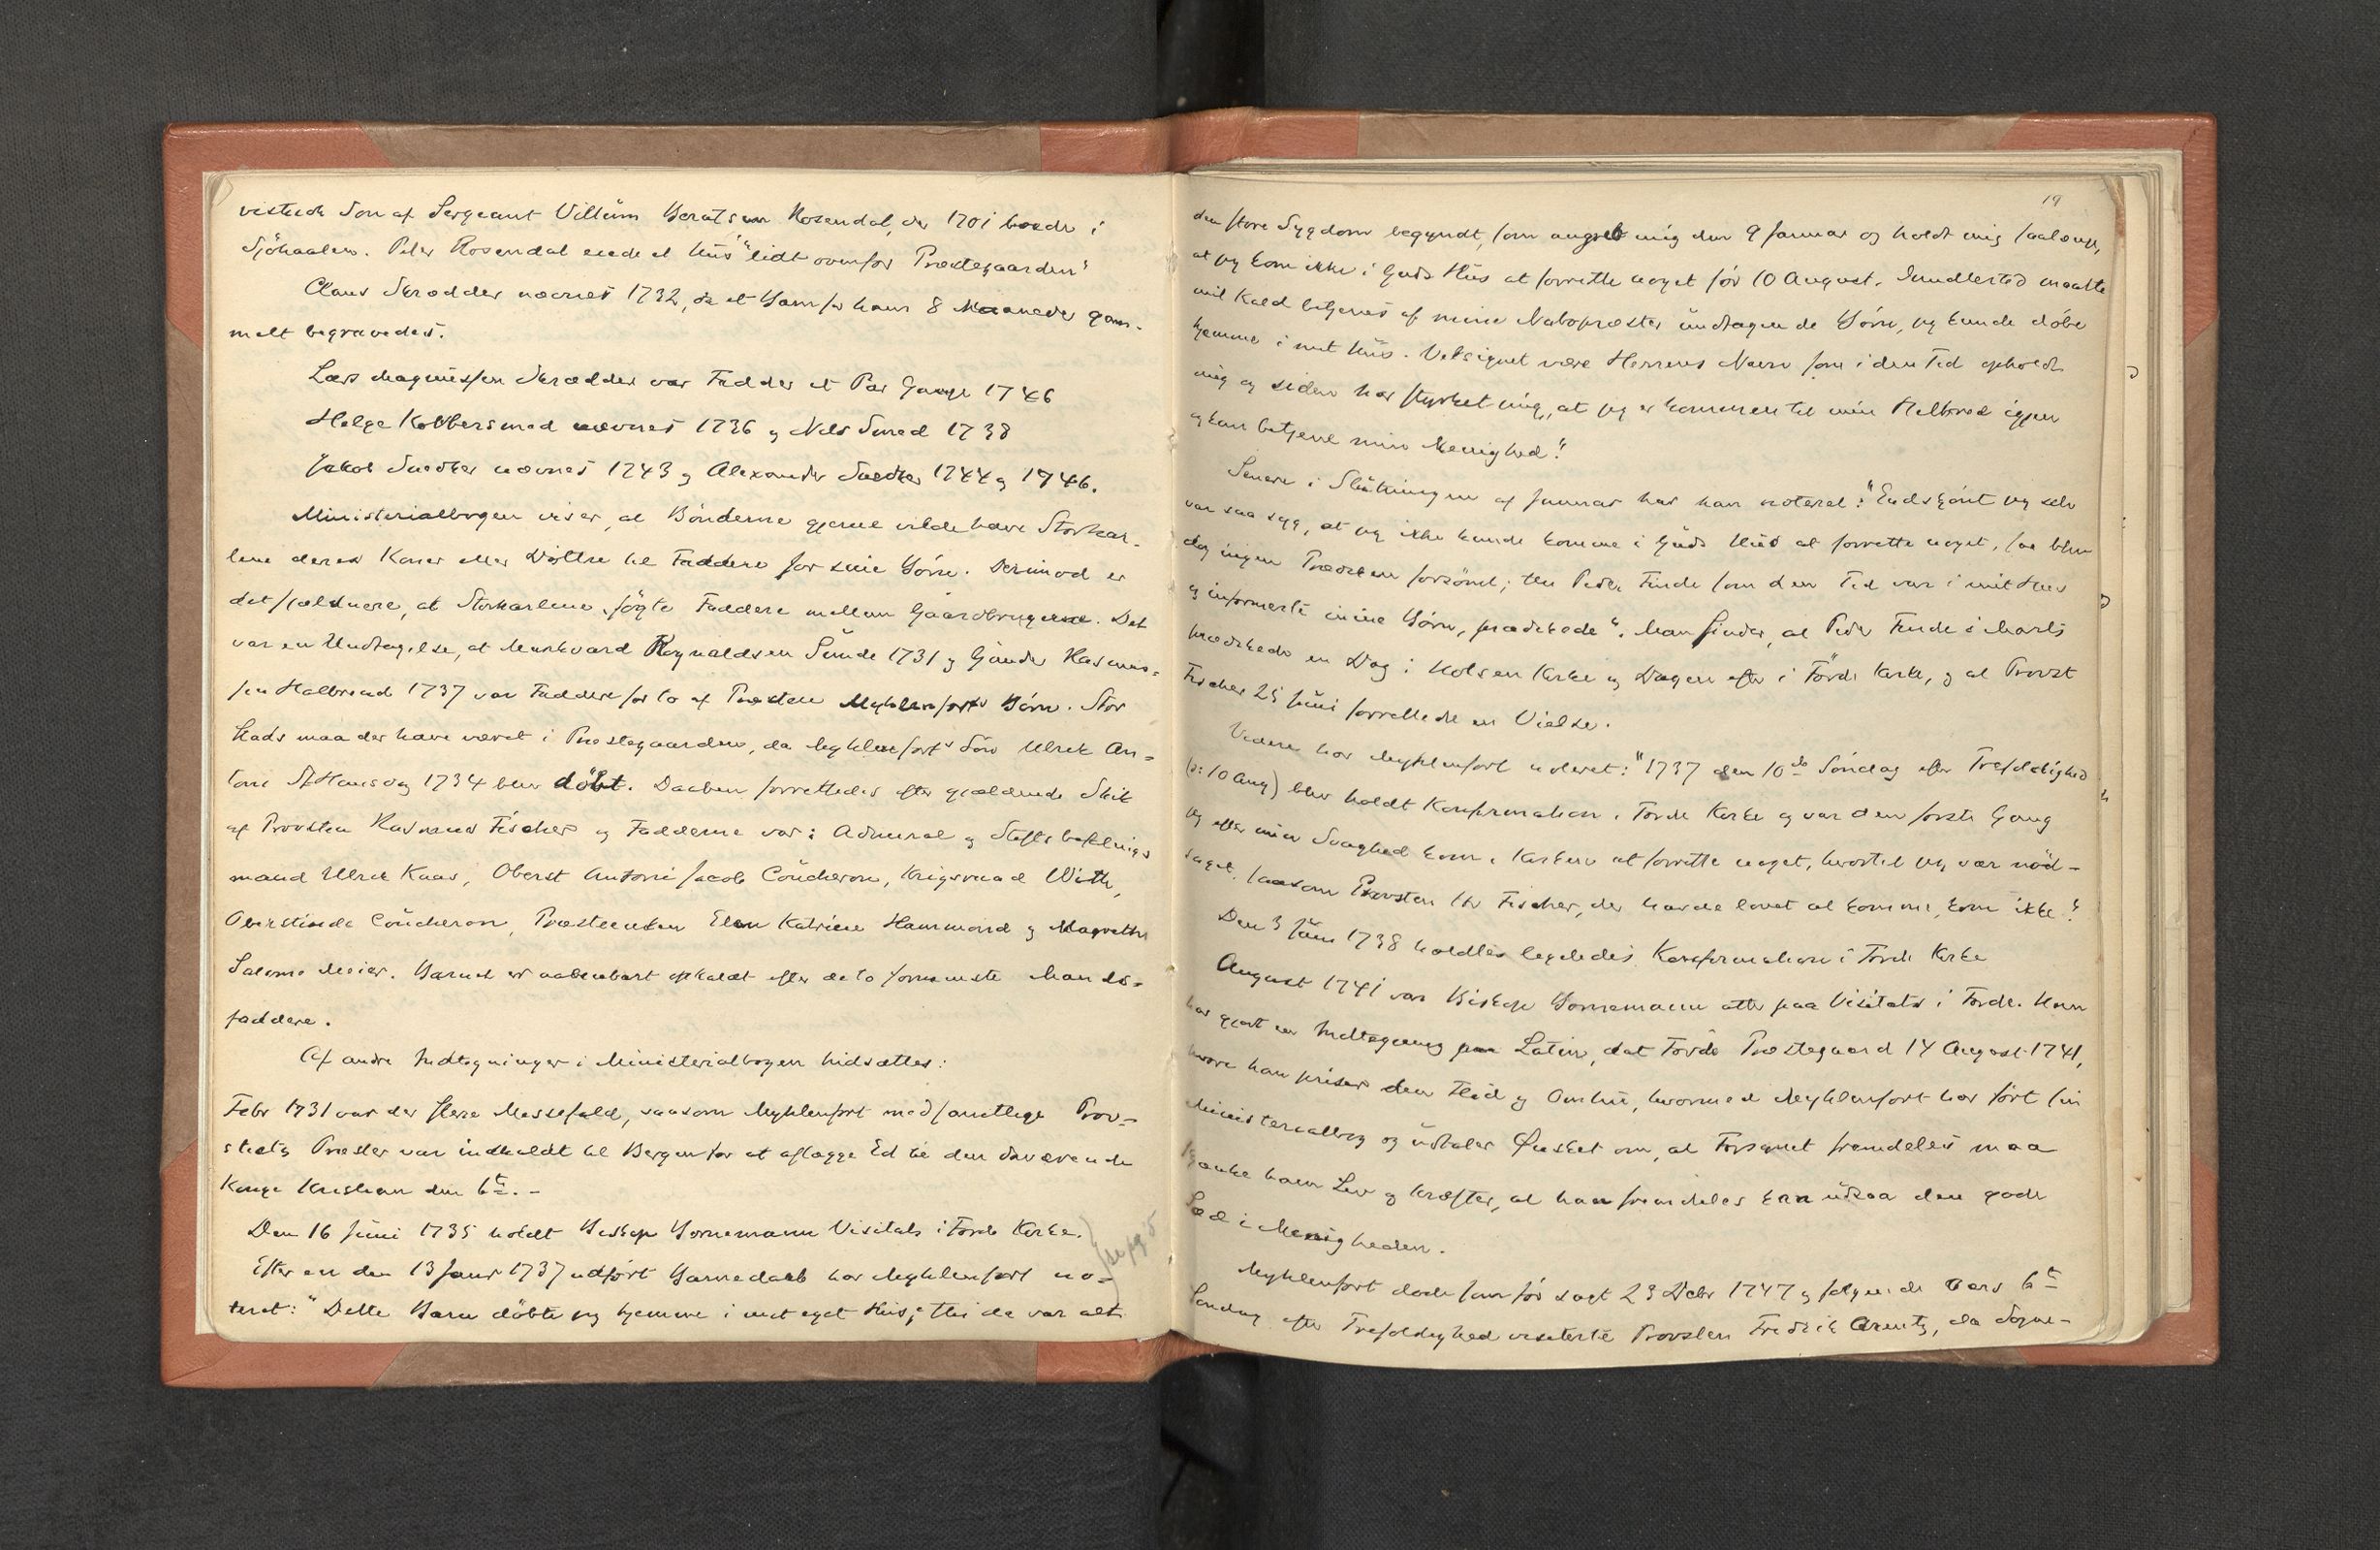 vistnok Son af Sergeant Villum Berntsen Rosendal, der 1701 boede i
Sjöhaalen. Peter Rosendal eiede et Hüs "lidt ovenfor Præstegaarden"
Claus Skrædder nævnes 1732, da et Barn for ham 8 Maaneder gam-
melt begravedes.
Lars Magnüssen Skrædder var Fadder et Par Gange 1746
Helge Kobbersmed nævnes 1736 og Nils Smed 1738
Jakob Snedker nævnes 1743 og Alexander Snedker 1744 og 1746.
Ministerialbogen viser, at Bönderne gjerne vilde have Storkar-
lene deres Koner eller Döttre til Faddere for sine Börn. Derimod er
det sjeldnere, at Storkarlene sögte Faddere mellem Gaardbrugerne. Det
var en Undtagelse, at Markvard Reynaldsen Sünde 1731 og Günder Rasmus-
sen Halbrend 1737 var Faddere for to af Præsten Myhlenforts Börn. Stor
Stads maa der have været i Præstegaarden, da Myhlenforts Sön Ulrik An-
toni St Hansdag 1734 blev döbt. Daaben forrettedes efter gjældende Skik
af Provsten Rasmus Fischer og Fadderne var: Admiral og Stiftsbefalings
mand Ulrik Kaas, Oberst Antoni Jacob Coücheron, Krigsraad With,
Oberstinde Coücheron, Præsteenken Elen Katrine Hammond og Magrethe
Salome Meier. Barnet er aabenbart opkaldt efter de to fornemste Mands-
faddere.
Af andre Indtegninger i Ministerialbogen hidsættes:
Febr 1731 var der flere Messefald, saasom Myhlenfort med samtlige Prov-
stiets Præster var indkaldt til Bergen for at aflægge Ed til den daværende
Konge Kristian den 6te. -
Den 16 Juni 1735 holdt Biskop Bornemann Visitats i Förde Kirke.
se pg 5
Efter en den 13 Janr 1737 udfört Barnedaab har Myhlenfort no-
teret: "Dette Barn döbte jeg hjemme i mit eget Hüs; thi da var alt
19
den store Sygdom begyndt, som angreb mig den 9 Januar og holdt mig saalænge,
at jeg kom ikke i Guds Hüs at forrette noget för 10 August. Imidlertid maatte
mit Kald betjenes af mine Nabopræster ündtagen de Börn, jeg kunde döbe
hjemme i mit Hüs. Velsignet være Herrens Navn som i den Tid opholdt
mig og siden har styrket mig, at jeg er kommen til min Helbred igjen
og kan betjene min Menighed."
Senere i Slütningen af Januar har han noteret: "Endskjönt jeg selv
var saa syg, at jeg ikke kunde komme i Guds Hüs at forrette noget, saa blev
dog ingen Prædiken forsömt; thi Peder Finde som den Tid var i mit Hus
og informerte mine Börn, prædikede". Man finder, at Peder Finde i Marts
prædikede en Dag i Holsen Kirke og Dagen efter i Förde Kirke, og at Provst
Fischer 25 Juni forrettede en Vielse.
Videre har Myhlenfort noteret: "1737 den 10de Söndag efter Trefoldighed
(ɔ: 10 Aug) blev holdt Konfirmation i Förde Kirke og var den förste Gang
jeg efter min Svaghed kom i Kirken at forrette noget, hvortil jeg var nöd-
saget, saasom Provsten Hr Fischer, der havde lovet at komme, kom ikke."
Den 3 Juni 1738 holdtes ligeledes Konfirmation i Förde Kirke
August 1741 var Biskop Bornemann atter paa Visitats i Förde. Han
har gjort en Indtegning paa Latin, dat Förde Præstegaard 14 August 1741,
hvori han priser den Flid og Omhü, hvormed Myhlenfort har fört sin
Ministerialbog og üdtaler Önsket om, at Forsynet fremdeles maa
skjænke ham Liv og Kræfter, at han fremdeles kan üdsaa den gode
Sæd i Menigheden.
Myhlenfort döde som för sagt 23 Debr 1747 og fölgende Aars 6te
Söndag efter Trefoldighed visiterte Provsten Fredrik Arentz, da Sogne-